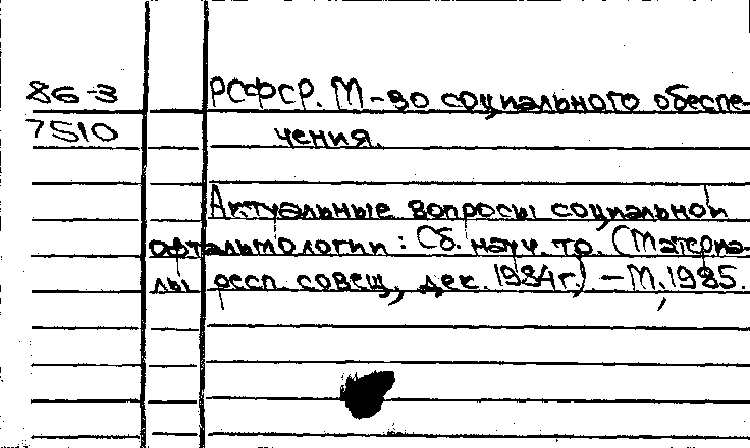 86-3 РСФСР. М-во социального обеспе-
7510 чения.
Актуальные вопросы социальной
офтальмологии: Сб. науч. тр. (Материа-
лы респ. совещ., дек. 1984г.) – М., 1985.